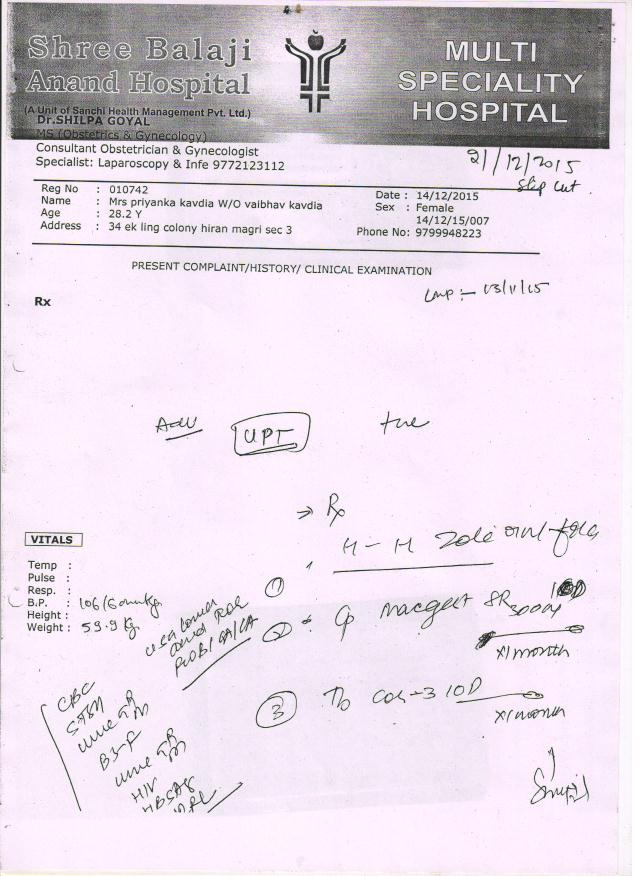 Shree Balaji
Anand Hospital
(A Unit of Sanchi Health Management Pvt. Ltd.)
MULTI
SPECIALITY
HOSPITAL
Dr.SHILPA GOYAL
MS (Obstetrics & Gynecology)
Consultant Obstetrician & Gynecologist
Specialist: Laparoscopy & Infe 9772123112
21/12/2015
slip cut
Reg No : 010742
Name : Mrs priyanka kavdia W/O vaibhav kavdia
Age : 28.2 Y
Address : 34 ek ling colony hiran magri sec 3
Date : 14/12/2015
Sex : Female
14/12/15/007
Phone No: 9799948223
PRESENT COMPLAINT/HISTORY/ CLINICAL EXAMINATION
LMP :- 13/11/15
Rx
Adv UPT +ve
→ Rx
VITALS
Temp :
Pulse :
Resp. :
B.P. : 106/60mmHg
Height :
Weight : 59.9 kg
①
② SR
x1 month
③
x1 month
CBC
urine
urine
HIV
HBSAG